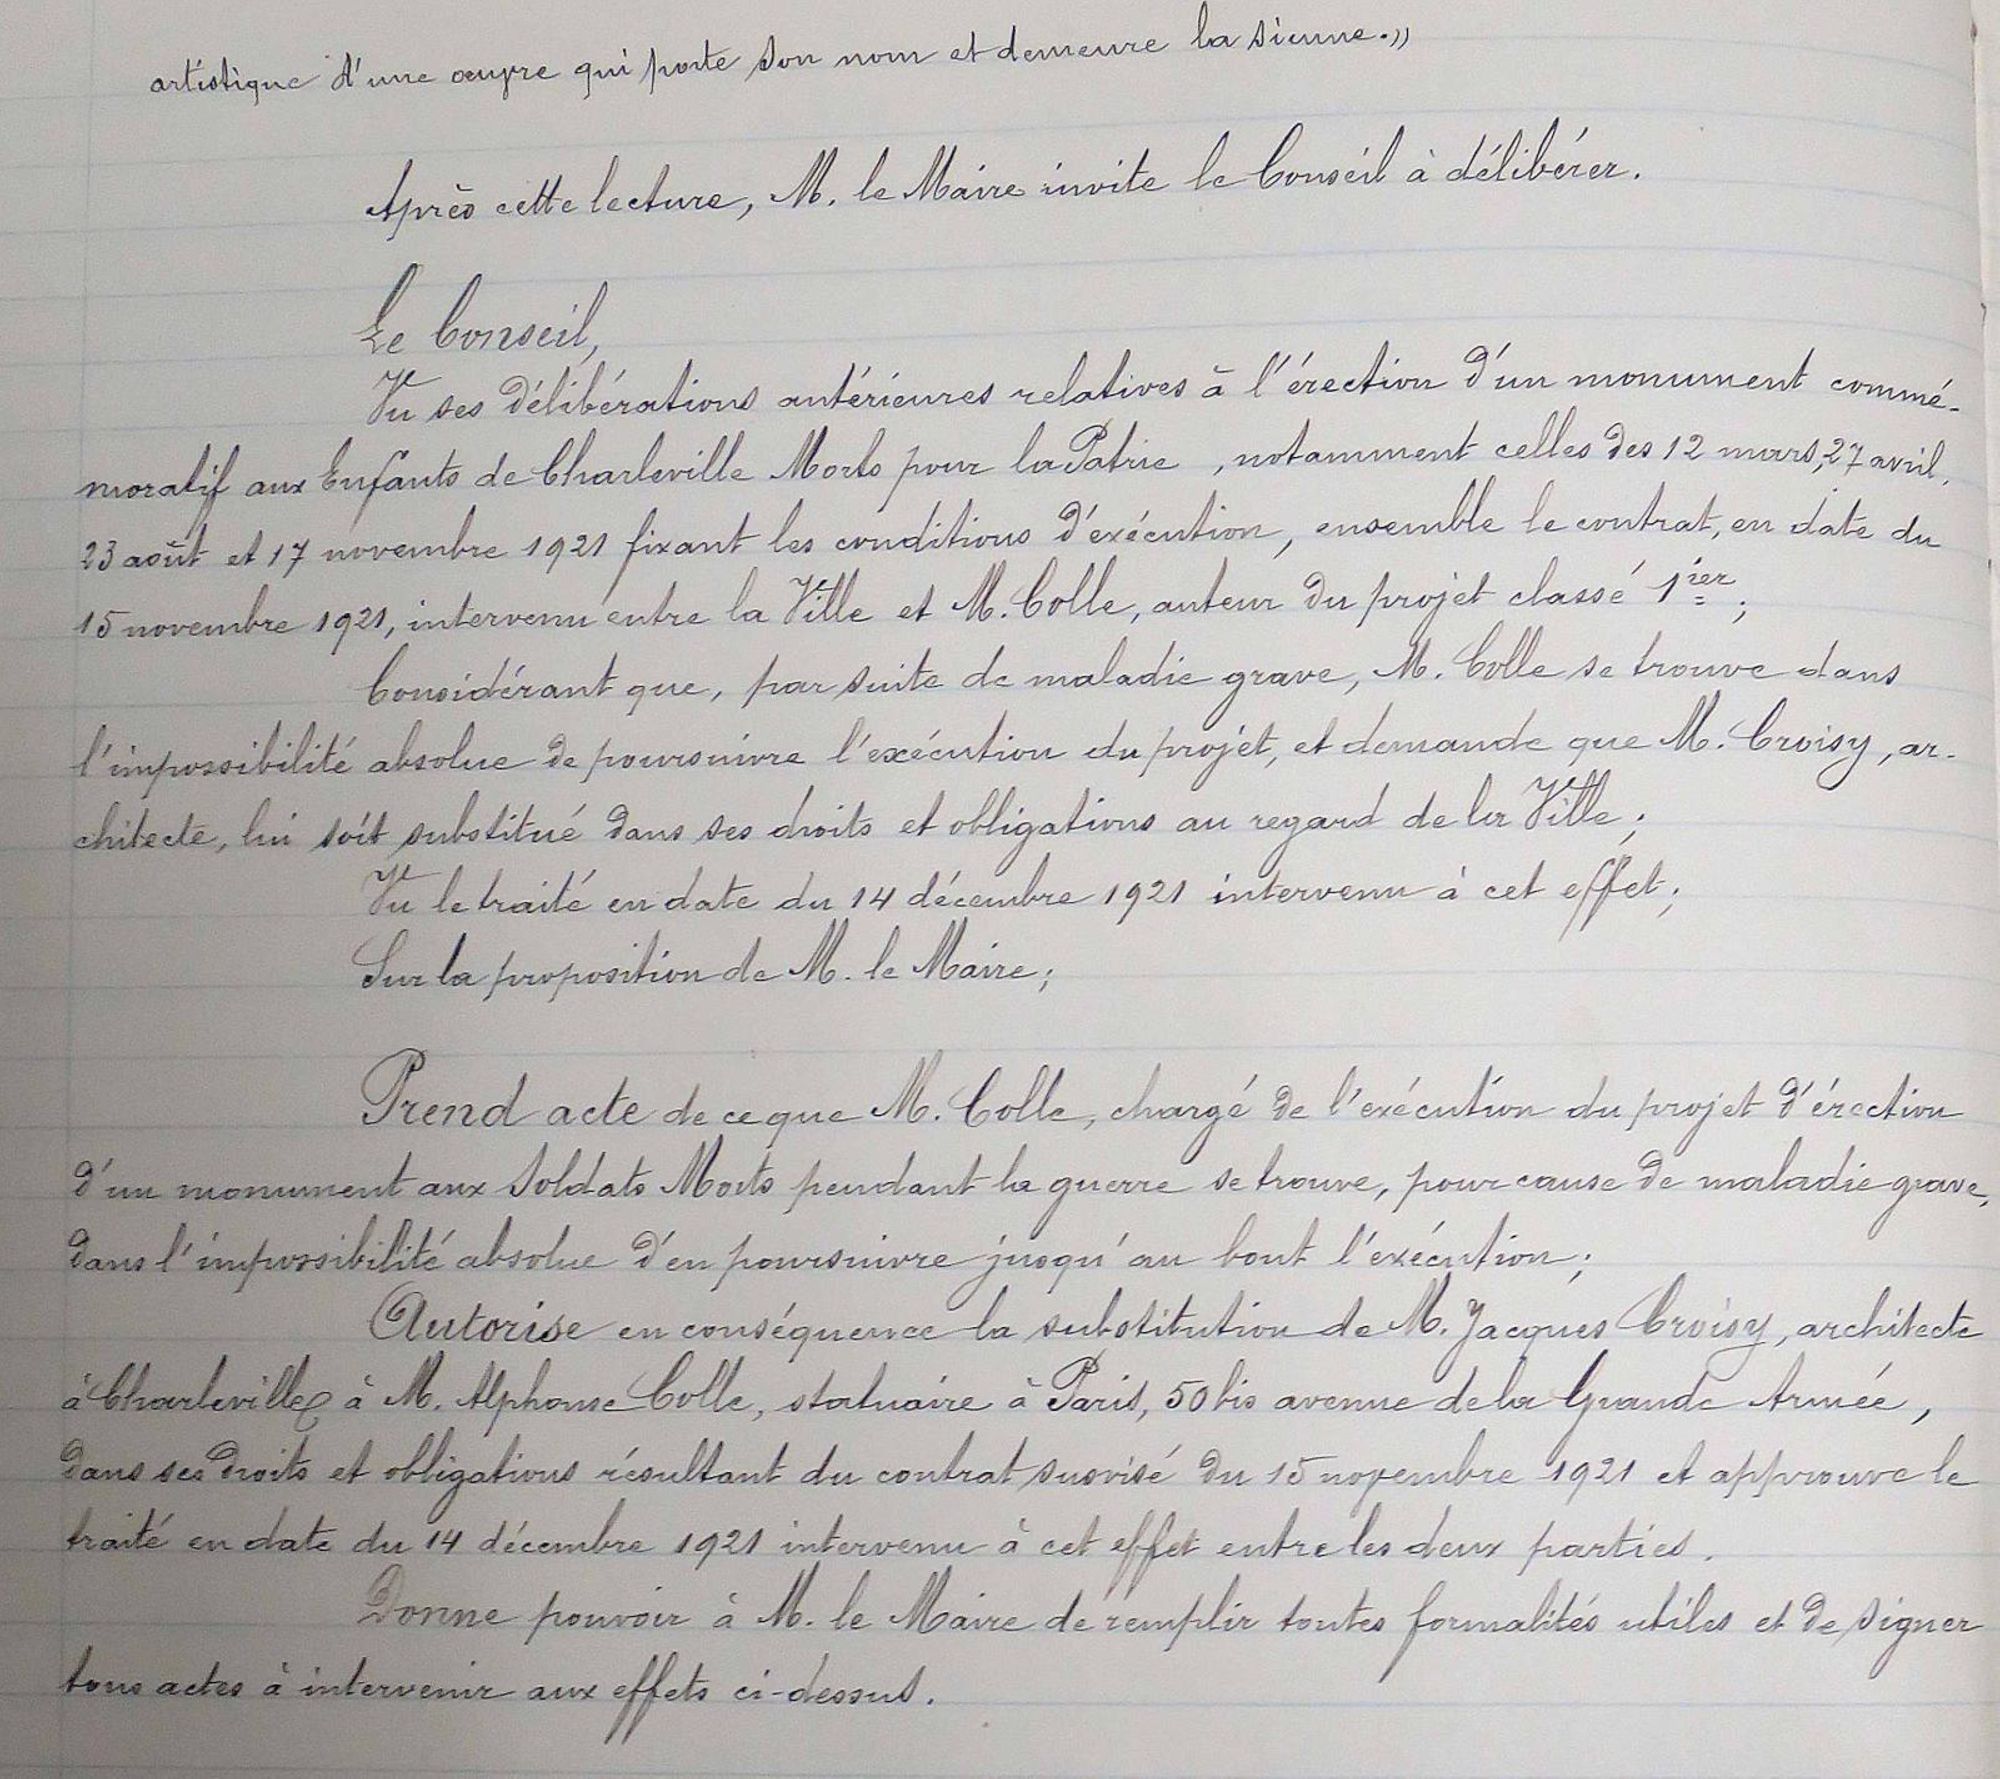 artistique d'une œuvre qui porte son nom et demeure la sienne.»
Après cette lecture, M. le Maire invite le Conseil à délibérer.
Le Conseil,
Vu ses délibérations antérieures relatives à l'érection d'un monument commé-
moratif aux Enfants de Charleville Morts pour la Patrie, notamment celles des 12 mars, 27 avril,
23 août et 17 novembre 1921 fixant les conditions d'exécution, ensemble le contrat, en date du
15 novembre 1921, intervenu entre la Ville et M. Colle, auteur du projet classé 1ier;
Considérant que, par suite de maladie grave, M. Colle se trouve dans
l'impossibilité absolue de poursuivre l'exécution du projet, et demande que M. Croisy, ar-
chitecte, lui soit substitué dans ses droits et obligations au regard de la Ville;
Vu le traité en date du 14 décembre 1921 intervenu à cet effet;
Sur la proposition de M. le Maire;
Prend acte de ce que M. Colle, chargé de l'exécution du projet d'érection
d'un monument aux Soldats Morts pendant la guerre se trouve, pour cause de maladie grave,
dans l'impossibilité absolue d'en poursuivre jusqu'au bout l'exécution;
Autorise en conséquence la substitution de M. Jacques Croisy, architecte
à Charleville à M. Alphonse Colle, statuaire à Paris, 50 bis avenue de la Grande Armée,
dans ses droits et obligations résultant du contrat susvisé du 15 novembre 1921 et approuve le
traité en date du 14 décembre 1921 intervenu à cet effet entre les deux parties.
Donne pouvoir à M. le Maire de remplir toutes formalités utiles et de signer
tous actes à intervenir aux effets ci-dessus.